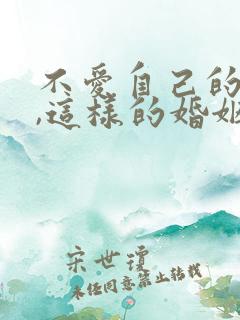 不愛自己的
,這樣的婚姻
宋世瓊
未经同意禁止转载